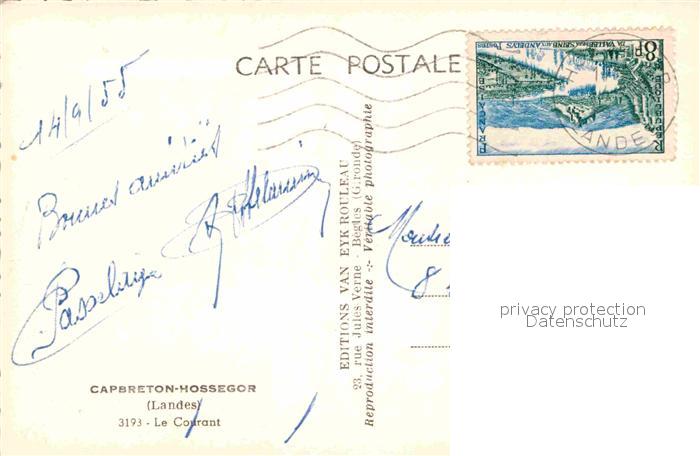 CARTE POSTALE
14/9/55
Bonnes amitiés
CAPBRETON-HOSSEGOR
(Landes)
3193 - Le Courant
EDITIONS VAN EYK ROULEAU
23, rue Jules Verne - Bègles (Gironde)
Reproduction interdite -:- Véritable photographie
8F
LA VALLÉE DE LA SEINE AUX ANDELYS POSTES
REPUBLIQUE
FRANÇAISE
LANDES
8
privacy protection
Datenschutz